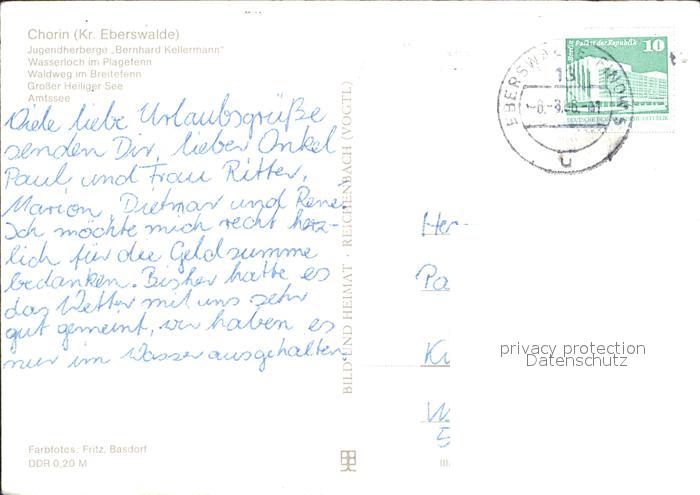 Chorin (Kr. Eberswalde)
Jugendherberge „Bernhard Kellermann"
Wasserloch im Plagefenn
Waldweg im Breitefenn
Großer Heiliger See
Amtssee
Viele liebe Urlaubsgrüße
senden Dir, lieber Onkel
Paul und Frau Ritter,
Marion, Dietmar und Rene
Ich möchte mich recht herz-
lich für die Geldsumme
bedanken. Bisher hatte es
das Wetter mit uns sehr
gut gemeint, wir haben es
nur im Wasser ausgehalten.
Farbfotos: Fritz, Basdorf
DDR 0,20 M
BILD UND HEIMAT · REICHENBACH (VOGTL)
Berlin Palast der Republik 10
EBERSWALDE-FINOW 5
13
Her
Pa
W
5
III
privacy protection
Datenschutz